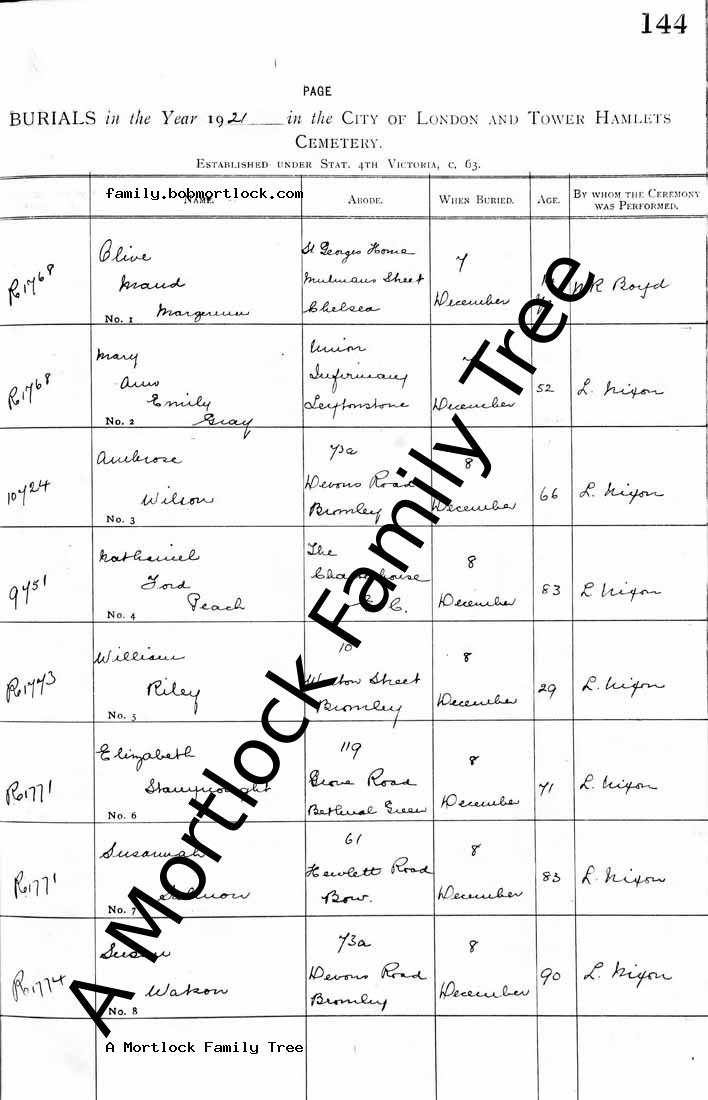 144
PAGE
BURIALS in the Year 1921 in the CITY OF LONDON AND TOWER HAMLETS
CEMETERY.
ESTABLISHED UNDER STAT. 4TH VICTORIA, C. 63.
family.bobmortlock.com
NAME. ABODE. WHEN BURIED. AGE. BY WHOM THE CEREMONY
WAS PERFORMED.
R1768 Olive Maud No. 1 St Georges Home Street Chelsea 7 December Boyd
R1768 Mary Ann Emily Gray No. 2 Union Infirmary Leytonstone December 52 L. Nixon
10724 Ambrose Wilson No. 3 73a Devons Road Bromley 8 December 66 L. Nixon
9751 Nathaniel Ford Peach No. 4 The C. 8 December 83 L Nixon
R1773 William Riley No. 5 10 Street Bromley 8 December 29 L. Nixon
R1771 Elizabeth No. 6 119 Grove Road Bethnal Green 8 December 71 L. Nixon
R1771 Susannah No. 7 61 Hewlett Road Bow. 8 December 83 L. Nixon
R1774 Watson No. 8 73a Devons Road Bromley 8 December 90 L. Nixon
A Mortlock Family Tree
A Mortlock Family Tree